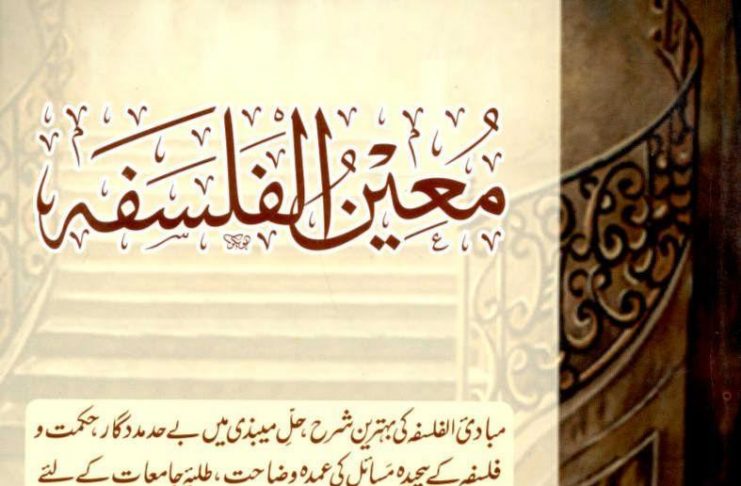 مُعِيْنُ الفَلسَفَہ
مبادیٔ الفلسفہ کی بہترین شرح، حلِّ میبذی میں بے حد مددگار، حکمت و
فلسفہ کے پیچیدہ مَسائل کی عمدہ وضاحت، طلبۂ جامعات کے لئے